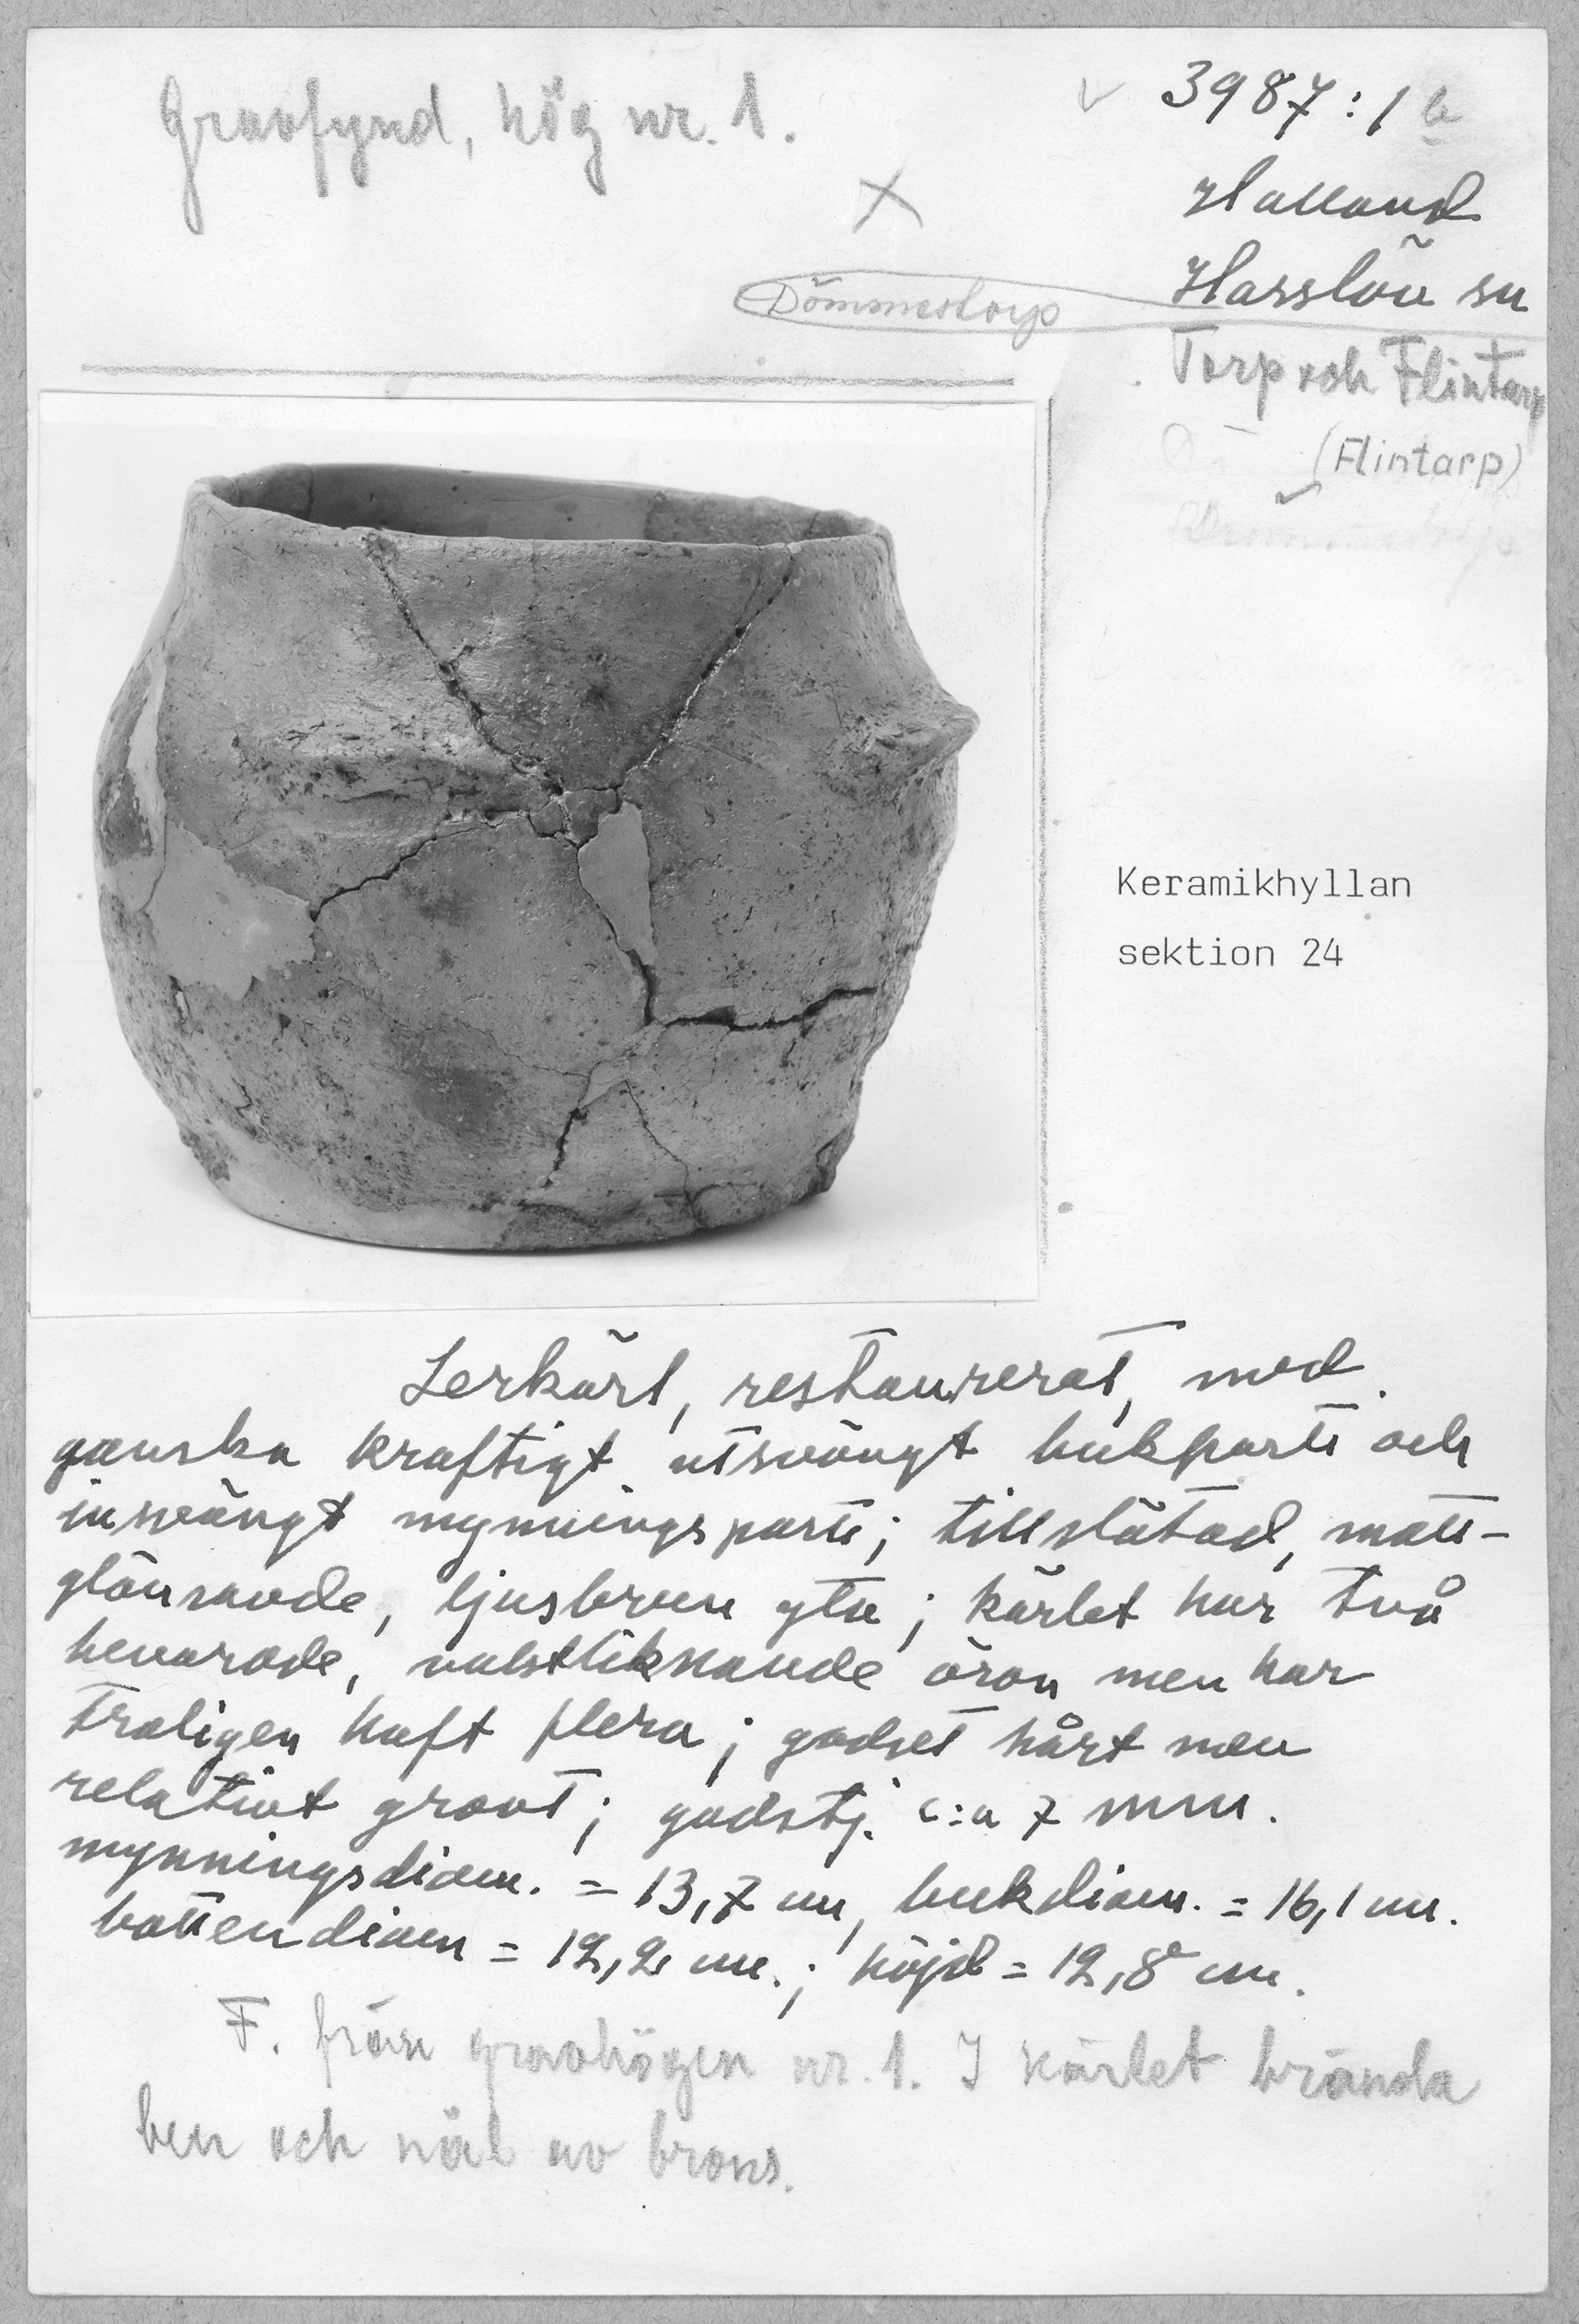 Gravfynd, hög nr. 1.
3987:1 a
Halland
Hasslöv sn
Dömmestorp
Torp och Flintarp
(Flintarp)
Keramikhyllan
sektion 24
Lerkärl, restaurerat, med
ganska kraftigt utsvängt bukparti och
insvängt mynningsparti; tillslätad, matt-
glänsande, ljusbrun yta; kärlet har två
bevarade, valstliknande öron men har
troligen haft flera; godset hårt men
relativt grovt; godstj. c:a 7 mm.
mynningsdiam. = 13,7 cm, bukdiam. = 16,1 cm.
bottendiam = 12,2 cm.; höjd = 12,8 cm.
F. från gravhögen nr. 1. I kärlet brända
ben och nål av brons.